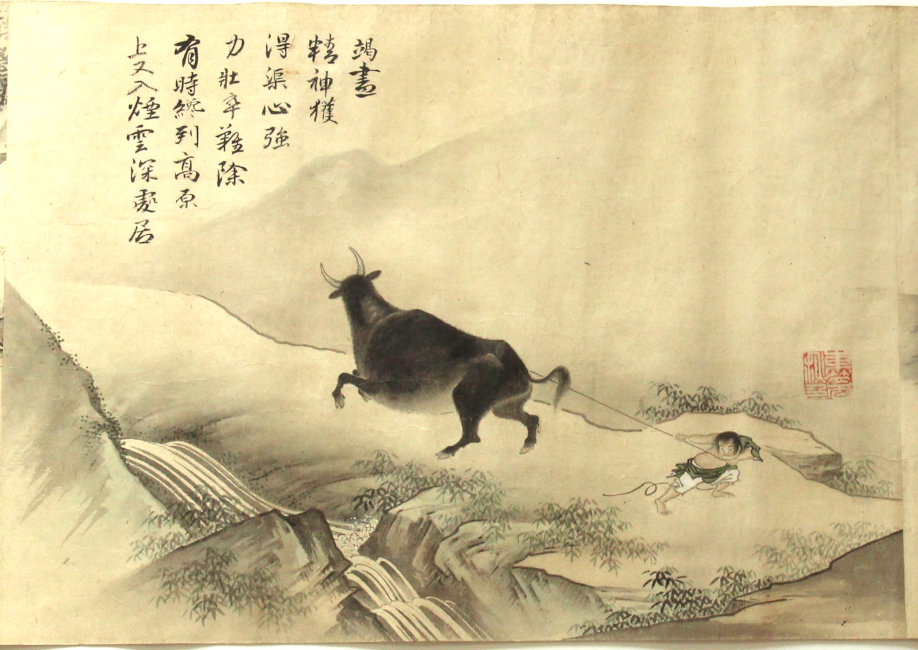 竭盡
精神獲
得渠心強
力壯卒難除
有時纔到高原
上又入煙雲深處居